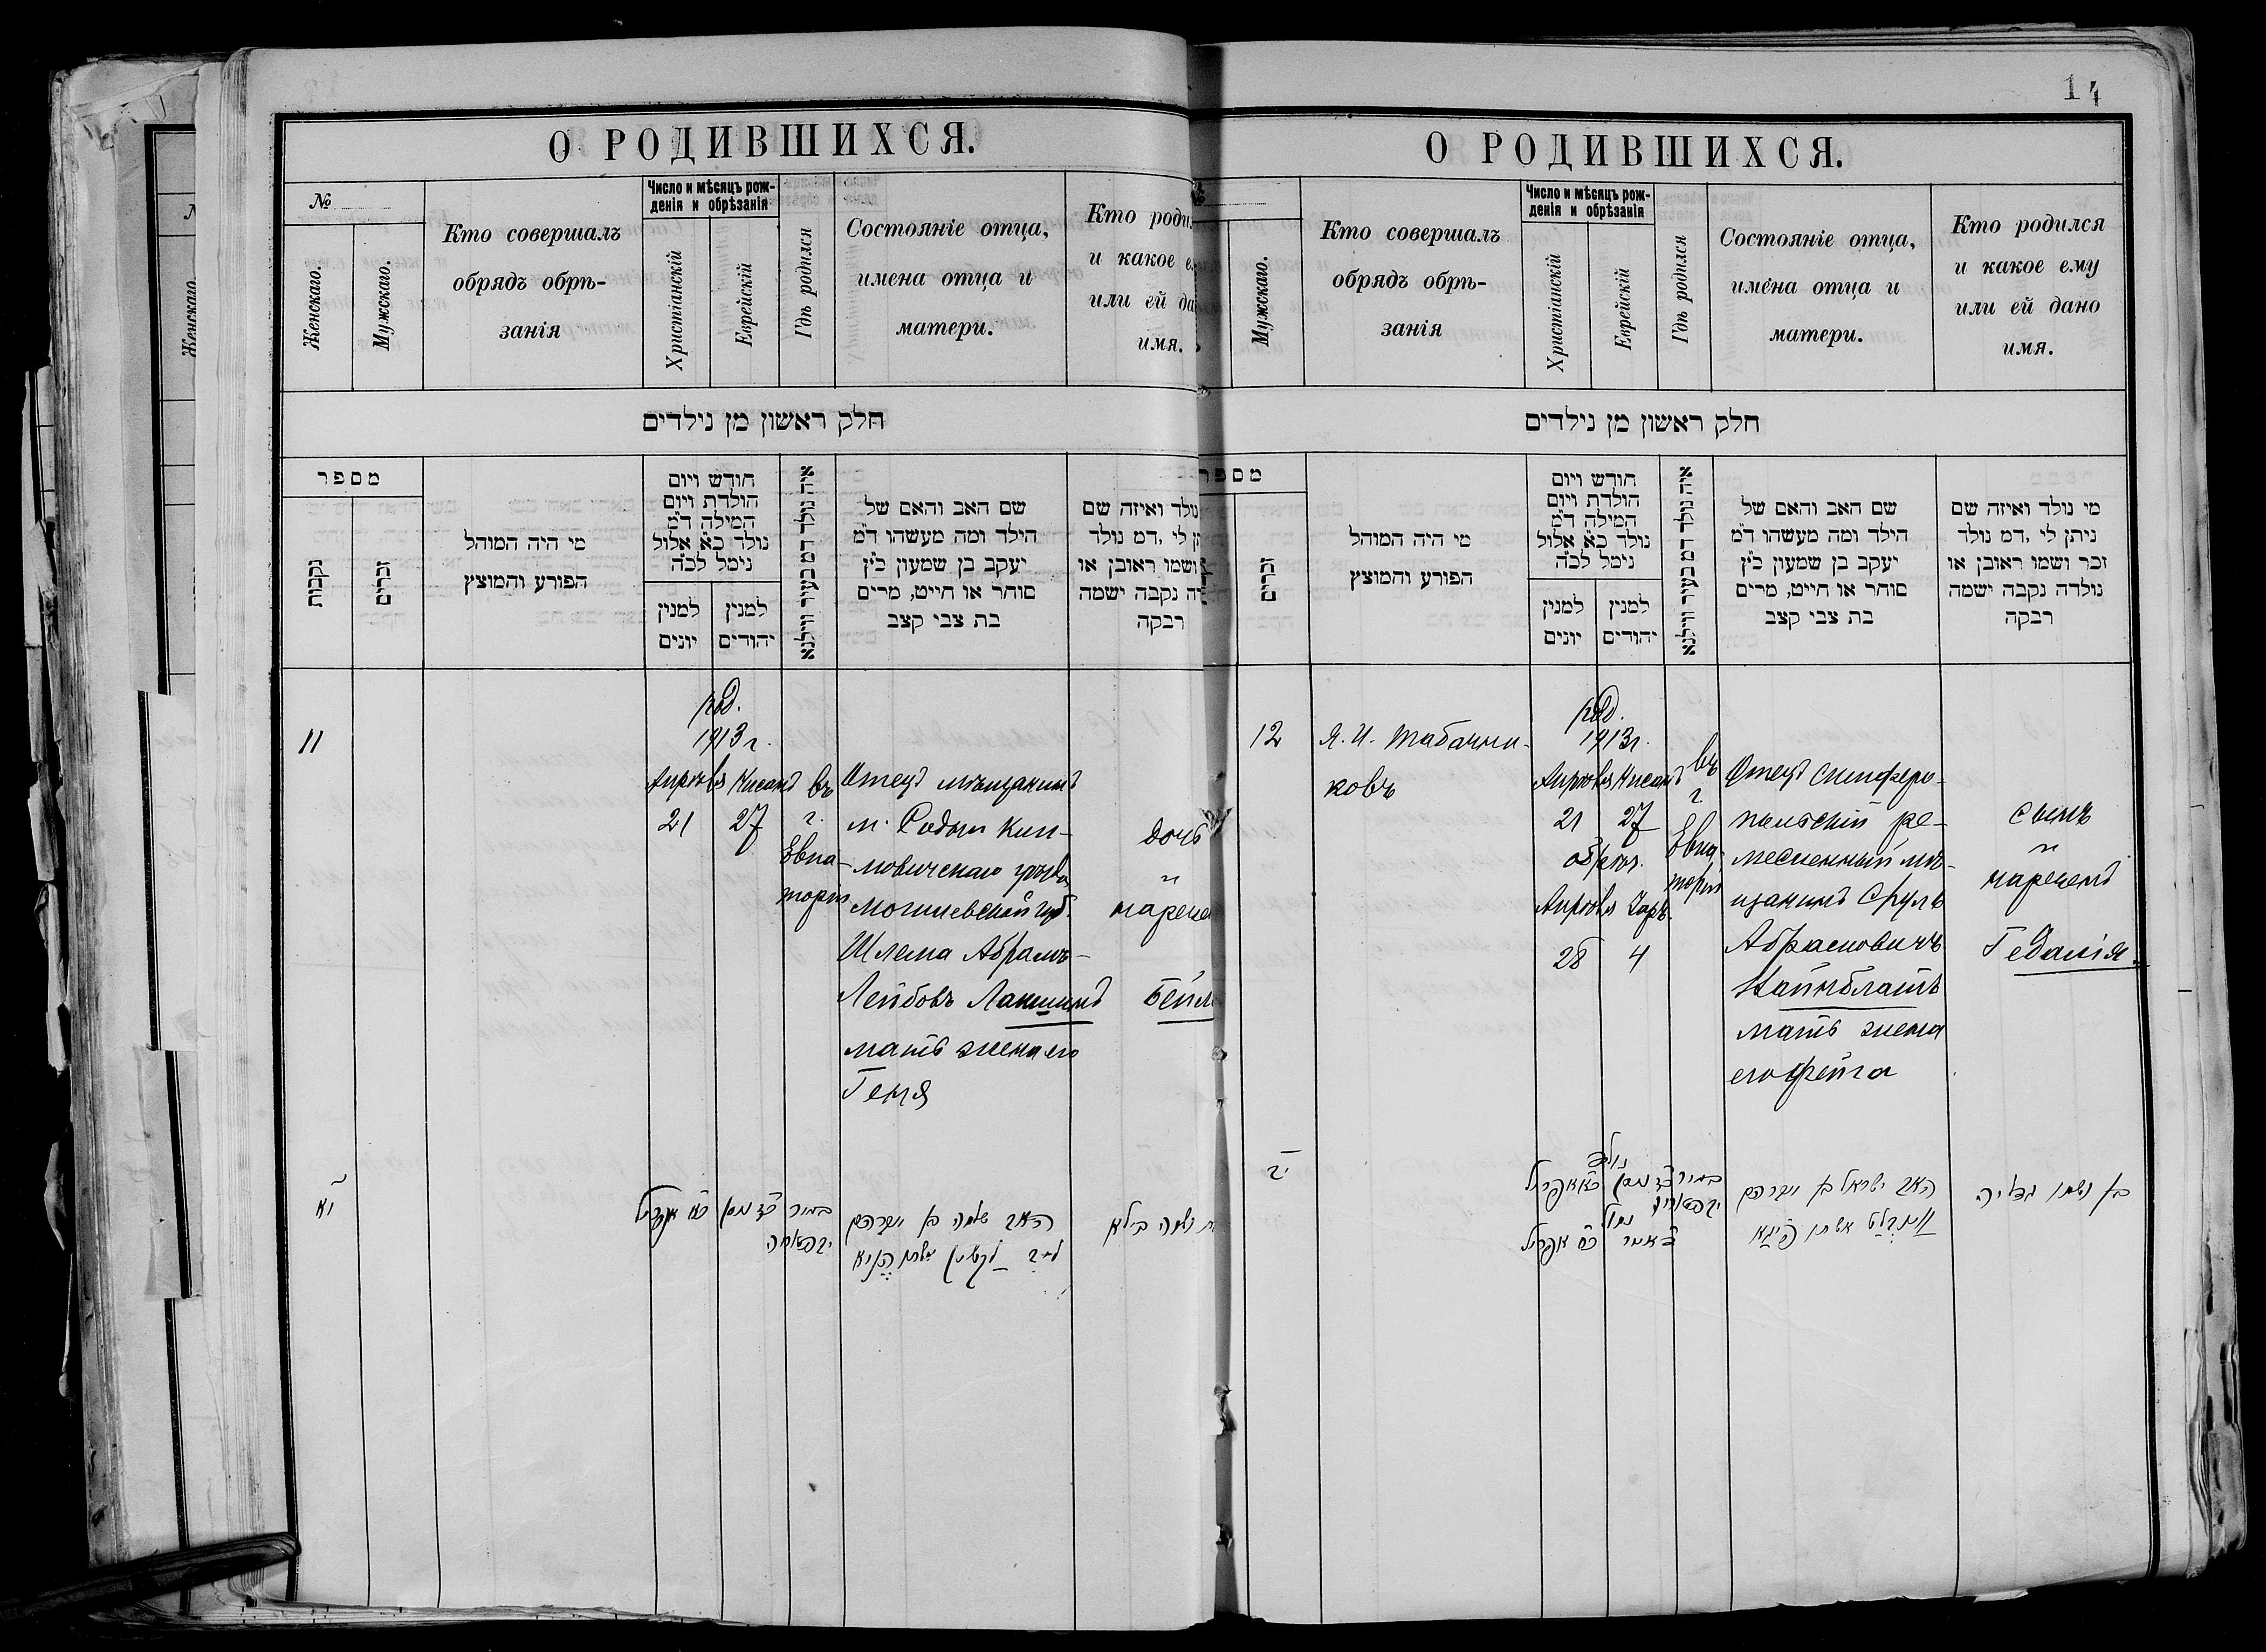 14
О РОДИВШИХСЯ.
№
Женскаго.
Мужскаго.
Кто совершалъ
обрядъ обрѣ-
занія
Число и мѣсяцъ рож-
денія и обрѣзанія
Христіанскій
Еврейскій
Гдѣ родился
Состояніе отца,
имена отца и
матери.
Кто роди
и какое е
или ей да
имя.
חלק ראשון מן נילדים
מספר
נקבות
זכרים
מי היה המוהל
הפורע והמוצץ
חודש ויום
הולדת ויום
המילה ד״מ
נולד כ״א אלול
נימל לכ״ה
למנין
יונים
למנין
יהודים
איה נולד דמ בעיר ווילנא
שם האב והאם של
הילד ומה מעשהו ד״מ
יעקב בן שמעון כ״ץ
סוחר או חייט, מרים
בת צבי קצב
נולד ואיזה שם
ן לי ,דמ נולד
ושמו ראובן או
ה נקבה ישמה
רבקה
11
род.
1913 г.
Апрѣля
21
Нисанъ
27
въ
г.
Евпа-
торіи
Отецъ мѣщанинъ
м. Родни Кли-
мовичскаго уѣзда
Могилевской губ.
Шлема Абрамъ-
Лейбовъ Лакшинъ
мать жена его
Геня
дочь
"
нарече
Бейл
יא
כ״א אפריל
כ״ז ניסן
בעיר
האב שלמה בן אברהם
ליב לקשין אשתו העניא
שמה ביילא
О РОДИВШИХСЯ.
№
Мужскаго.
Кто совершалъ
обрядъ обрѣ-
занія
Число и мѣсяцъ рож-
денія и обрѣзанія
Христіанскій
Еврейскій
Гдѣ родился
Состояніе отца,
имена отца и
матери.
Кто родился
и какое ему
или ей дано
имя.
חלק ראשון מן נילדים
מספר
זכרים
מי היה המוהל
הפורע והמוצץ
חודש ויום
הולדת ויום
המילה ד״מ
נולד כ״א אלול
נימל לכ״ה
למנין
יונים
למנין
יהודים
איה נולד דמ בעיר ווילנא
שם האב והאם של
הילד ומה מעשהו ד״מ
יעקב בן שמעון כ״ץ
סוחר או חייט, מרים
בת צבי קצב
מי נולד ואיזה שם
ניתן לי ,דמ נולד
זכר ושמו ראובן או
נולדה נקבה ישמה
רבקה
12
Я. И. Табачни-
ковъ
род.
1913 г.
Апрѣля
21
Нисанъ
27
обрѣз.
Апрѣля
28
4
въ
г.
Евпа-
торіи
Отецъ симферо-
польскій ре-
месленный мѣ-
щанинъ Сруль
Абрамовичъ
Вайнблатъ
мать жена
его Фейга
сынъ
"
нареченъ
Гедалія.
יב
נולד
כ״א אפריל
כ״ז ניסן
בעיר
נמול
כ״ח אפריל
האב ישראל בן אברהם
אשתו פייגא
בן ושמו גדליה